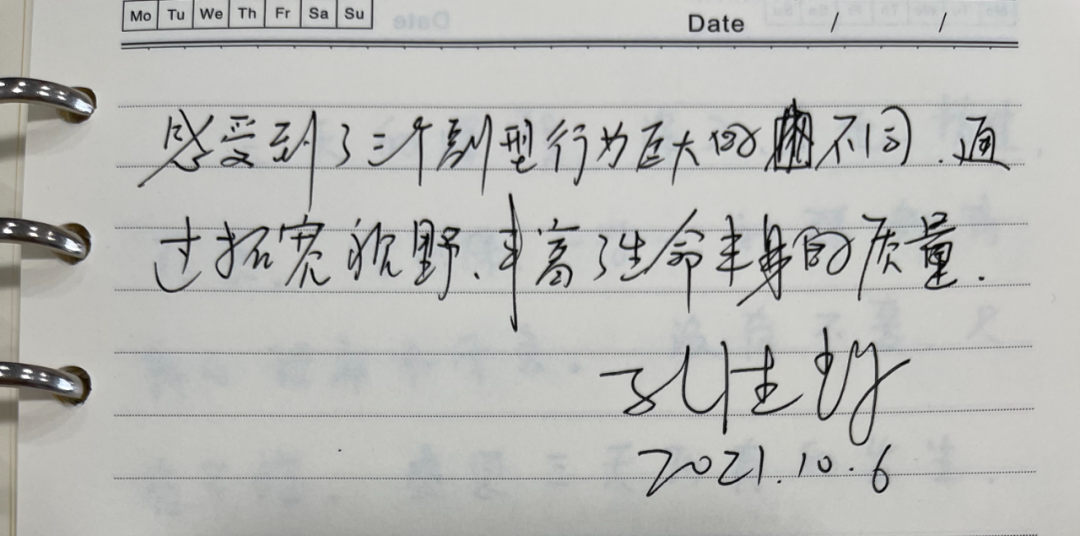 Mo Tu We Th Fr Sa Su
Date / /
感受到了三个副型行为巨大的不同.通
过拓宽视野、丰富了生命本身的质量.
2021.10.6